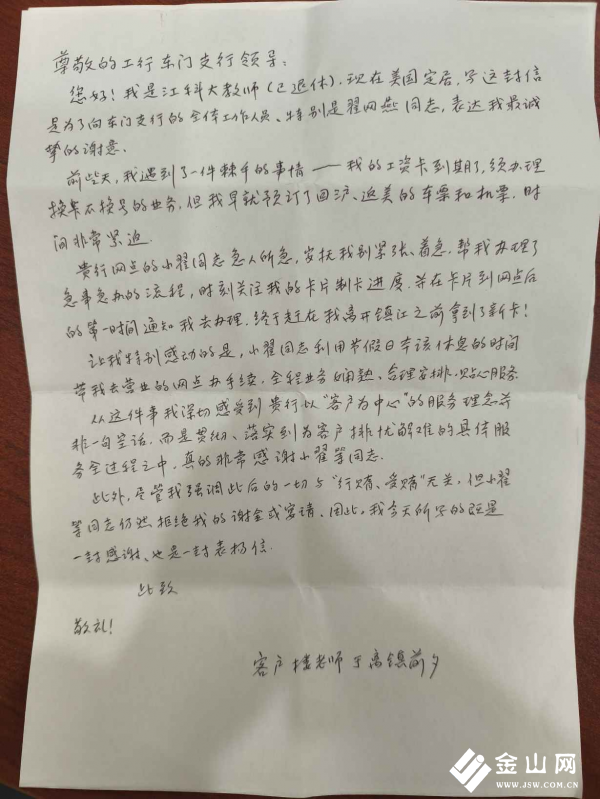 尊敬的工行东门支行领导:
您好!我是江科大教师(已退休),现在美国定居,写这封信
是为了向东门支行的全体工作人员、特别是翟网燕同志,表达我最诚
挚的谢意。
前些天,我遇到了一件棘手的事情——我的工资卡到期了,须办理
换卡不换号的业务,但我早就预订了回沪、返美的车票和机票,时
间非常紧迫.
贵行网点的小翟同志急人所急,安抚我别紧张、着急,帮我办理了
急事急办的流程,时刻关注我的卡片制卡进度.并在卡片到网点后
的第一时间通知我去办理.终于赶在我离开镇江之前拿到了新卡!
让我特别感动的是,小翟同志利用节假日本该休息的时间
带我去营业的网点办手续,全程业务娴熟、合理安排、贴心服务
从这件事我深切感受到贵行以"客户为中心"的服务理念并
非一句空话,而是贯彻、落实到为客户排忧解难的具体服
务全过程之中,真的非常感谢小翟等同志.
此外,尽管我强调此后的一切与"行贿、受贿"无关,但小翟
等同志仍然拒绝我的谢金或宴请、因此,我今天所写的既是
一封感谢、也是一封表扬信.
此致
敬礼!
客户 老师于离镇前夕
金山网
WWW.JSW.COM.CN